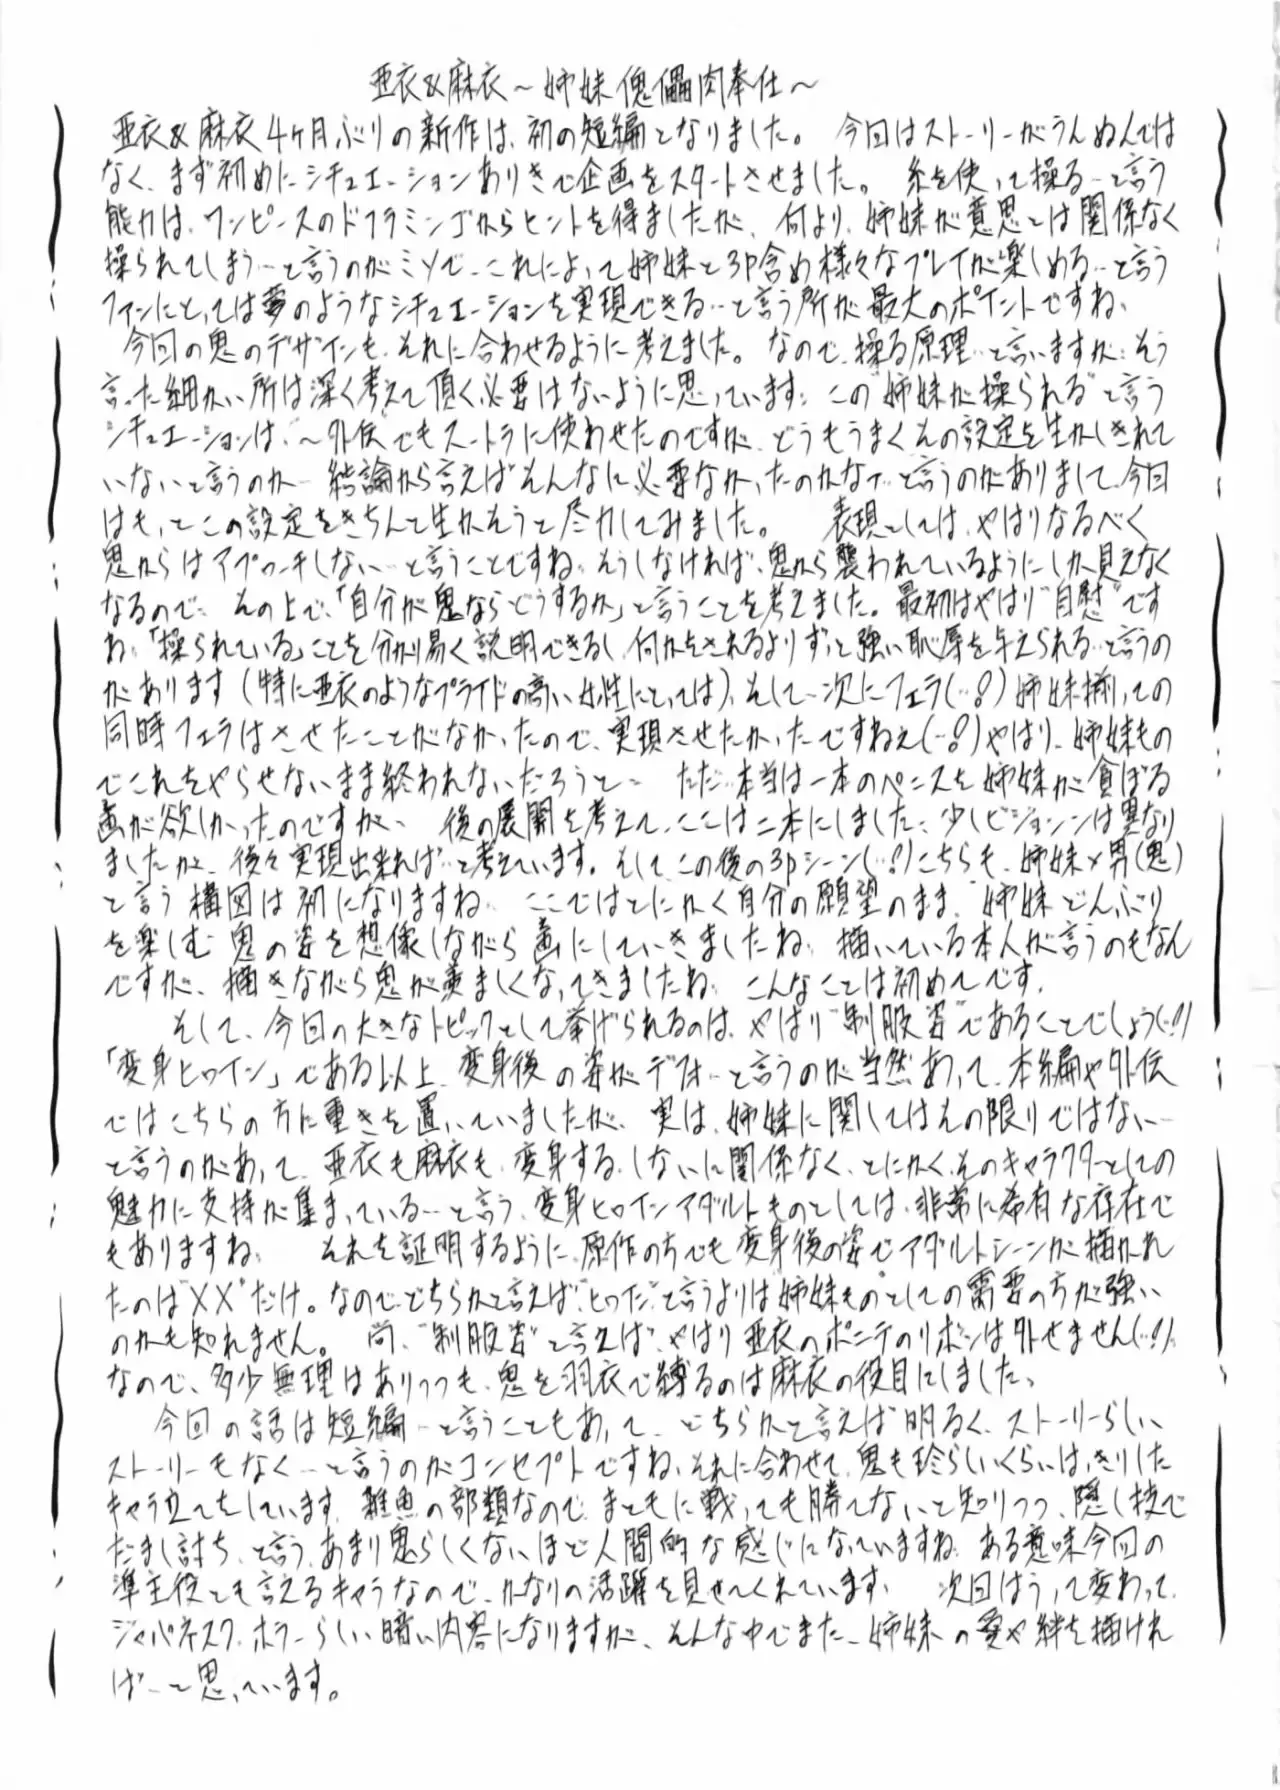 亜衣&麻衣～姉妹傀儡肉奉仕～
亜衣&麻衣4ヶ月ぶりの新作は、初の短編となりました。 今回はストーリーがうんぬんでは
なく、まず初めにシチュエーションありきで企画をスタートさせました。 糸を使って操る…と言う
能力は、ワンピースのドフラミンゴからヒントを得ましたが、何より、姉妹が意思とは関係なく
操られてしまう…と言うのがミソで、これによって姉妹と3P含め様々なプレイが楽しめる…と言う
ファンにとっては夢のようなシチュエーションを実現できる…と言う所が最大のポイントですね。
今回の鬼のデザインも、それに合わせるように考えました。なので、操る原理…と言いますか、そう
言った細かい所は深く考えて頂く必要はないように思っています。この“姉妹が操られる”と言う
シチュエーションは、“～外伝”でもスートラに使わせたのですが、どうもうまくその設定を生かしきれて
いないと言うのか… 結論から言えばそんなに必要なかったのかな…と言うのがありまして、今回
はもっとこの設定をきちんと生かそうと尽力してみました。 表現としては、やはりなるべく
鬼からはアプローチしない…と言うことですね。そうしなければ、鬼から襲われているようにしか見えなく
なるので。 その上で、「自分が鬼ならどうするか」と言うことを考えました。最初はやはり“自慰”です
ね。「操られている」ことを分かり易く説明できるし、何かをされるよりずっと強い恥辱を与えられる…と言うの
があります(特に亜衣のようなプライドの高い女性にとっては)。そして、次にフェラ(…!)姉妹揃っての
同時フェラはさせたことがなかったので、実現させたかったですねぇ(…!)やはり、姉妹もの
でこれをやらせないまま終われないだろうと… ただ、本当は一本のペニスを姉妹が貪ぼる
画が欲しかったのですが、 後の展開を考えて、ここは二本にしました。少しビジョンは異なり
ましたが、後々実現出来れば…と考えています。そしてこの後の3Pシーン(…!)こちらも、姉妹×男(鬼)
と言う構図は初になりますね。 ここではとにかく自分の願望のまま、“姉妹どんぶり”
を楽しむ鬼の姿を想像しながら画にしていきましたね。描いている本人が言うのもなん
ですが、描きながら鬼が羨ましくなってきましたね。こんなことは初めてです。
そして、今回の大きなトピックとして挙げられるのは、やはり“制服姿”であることでしょう(…!)
「変身ヒロイン」である以上、変身後の姿がデフォ…と言うのが当然あって、本編や外伝
ではこちらの方に重きを置いていましたが、実は、姉妹に関してはその限りではない…
と言うのがあって、亜衣も麻衣も、変身する、しないに関係なく、とにかくそのキャラクターとしての
魅力に支持が集まっている…と言う、変身ヒロインアダルトものとしては、非常に希有な存在で
もありますね。 それを証明するように、原作の方でも変身後の姿でアダルトシーンが描かれ
たのは“XX”だけ。なので、どちらかと言えば、“ヒロだ”と言うよりは姉妹ものとしての需要の方が強い
のかも知れません。 尚、“制服姿”と言えば、やはり亜衣のポニテのリボンは外せません(…!)。
なので、多少無理はありつつも、鬼を羽衣で縛るのは麻衣の役目にしました。
今回の話は短編…と言うこともあって、どちらかと言えば明るく、ストーリーらしい
ストーリーもなく…と言うのがコンセプトですね。それに合わせて、鬼も珍らしいくらいはっきりした
キャラ立てをしています。雑魚の部類なので、まともに戦っても勝てないと知りつつ、隠し技で
だまし討ち、と言う、あまり鬼らしくないほど人間的な感じになっていますね。ある意味今回の
準主役とも言えるキャラなので、かなりの活躍を見せてくれています。 次回はうって変わって、
ジャパネスク、ホラーらしい暗い内容になりますが、そんな中でまた、姉妹の愛や絆を描けれ
ば…と思っています。